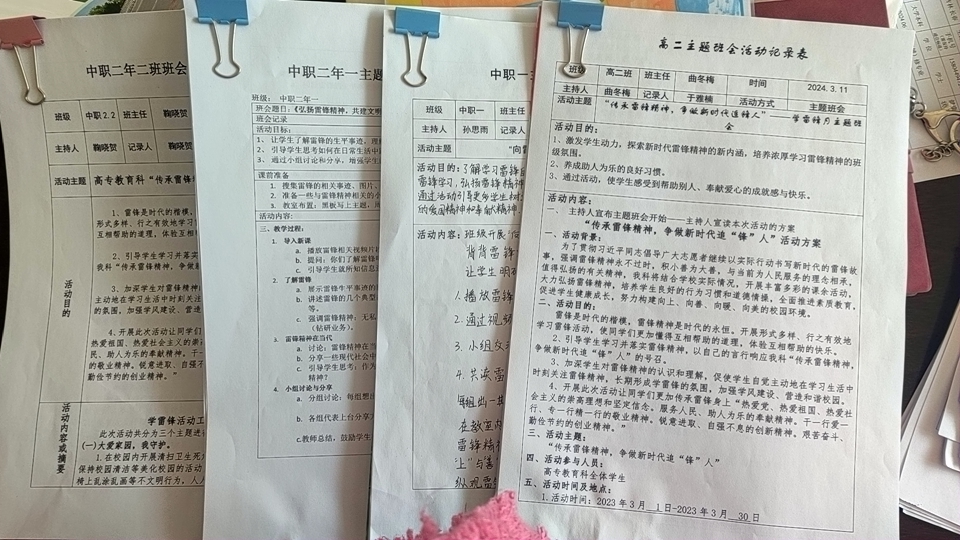 中职二年二班班会
班级 中职2.2 班主任 鞠晓贺
主持人 鞠晓贺 记录人
活动主题 高专教育科“传承雷锋
活动目的
1、雷锋是时代的楷模,
形式多样、行之有效地学习
互相帮助的道理,体验互相
2、引导学生学习并
我科“传承雷锋精神,争做新
3、加深学生对雷锋精神的
主动地在学习生活中时刻关注
的氛围,加强学风建设、营造
4、开展此次活动让同学们
热爱祖国、热爱社会主义的崇
民、助人为乐的奉献精神。干一
的敬业精神。锐意进取、自强不
勤俭节约的创业精神。”
活动内容或摘要
学雷锋活动工
此次活动共分为三个主题进
(一)大爱家园,我守护。
1.在校园内开展清扫卫生死
保持校园清洁等美化校园的活动
椅上乱涂乱画等不文明行为,人人
中职二年一主题
班级: 中职二年一
班会题目:《弘扬雷锋精神,共建文明
班会记录
活动目标:
1、 让学生了解雷锋的生平事迹,理
2、 引导学生思考如何在日常生活中
3、 通过小组讨论和分享,增强学生
课前准备
1、 搜集雷锋的相关事迹、图片、
2、 准备一些与雷锋精神相关的小
3、 教室布置:黑板写上主题,
活动内容:
三、教学过程:
1. 导入新课
a. 播放雷锋相关视频片段
b. 提问:你们了解雷锋
c. 引导学生就所知信息
2. 了解雷锋
a. 展示雷锋生平事迹的
b. 讲述雷锋的几个典型
等。
c. 强调雷锋精神:无私
(钻研业务)。
3. 雷锋精神在当代
a. 讨论:雷锋精神在当
b. 分享一些现代社会中
c. 引导学生思考:作为
精神?
4. 小组讨论与分享
a. 分组讨论:每组想
b. 各组代表上台分享
c.教师总结,鼓励学生
中职一主
班级 中职一 班主任
主持人 孙思雨 记录人
活动主题 “向雷
活动目的:了解学习雷锋
雷锋学习,弘扬雷锋精神
通过活动引导更多学生树立
的爱国精神和奉献精神.
活动内容:班级开展“
背背雷锋
让学生明
1.播放雷锋
2.通过视频
3.小组交流
4.共读雷
每组出一
在班室内
雷锋精神
让“与善
纵观雷锋
高二主题班会活动记录表
班级 高二班 班主任 曲冬梅 时间 2024.3.11
主持人 曲冬梅 记录人 于雅楠 活动方式 主题班会
活动主题 “传承雷锋精神,争做新时代追锋人”——学雷锋月主题班
会
活动目的:
1、激发学生动力,探索新时代雷锋精神的新内涵,培养浓厚学习雷锋精神的班
级氛围。
2、养成助人为乐的良好习惯。
3、通过活动,使学生感受到帮助别人、奉献爱心的成就感与快乐。
活动内容:
一、 主持人宣布主题班会开始——主持人宣读本次活动的方案
“传承雷锋精神,争做新时代追“锋”人”活动方案
一、活动背景:
为了贯彻习近平同志倡导广大志愿者继续以实际行动书写新时代的雷锋故
事,强调雷锋精神永不过时,积小善为大善。与当前为人民服务的理念相承,
值得弘扬的有关精神,我科将结合学校实际情况,开展丰富多彩的课余活动,
大力弘扬雷锋精神,培养学生良好的行为习惯和道德情操,全面推进素质教育,
促进学生健康成长,努力构建向上、向善、向暖、向美的校园环境。
二、活动目的:
雷锋是时代的楷模,雷锋精神是时代的永恒。开展形式多样、行之有效地
学习雷锋活动,使同学们更加懂得互相帮助的道理,体验互相帮助的快乐。
2、引导学生学习并落实雷锋精神,以自己的言行响应我科“传承雷锋精神,
争做新时代追“锋”人”的号召。
3、加深学生对雷锋精神的认识和理解,促使学生自觉主动地在学习生活中
时刻关注雷锋精神,长期形成学雷锋的氛围,加强学风建设、营造和谐校园。
4、开展此次活动让同学们更加传承雷锋身上“热爱党、热爱祖国、热爱社
会主义的崇高理想和坚定信念。服务人民、助人为乐的奉献精神。干一行爱一
行、专一行精一行的敬业精神。锐意进取、自强不息的创新精神。艰苦奋斗、
勤俭节约的创业精神。”
三、活动主题:
“传承雷锋精神,争做新时代追“锋”人”
四、活动参与人员:
高专教育科全体学生
五、活动时间及地点:
1.活动时间:2023年3月 1日-2023年3月 30日